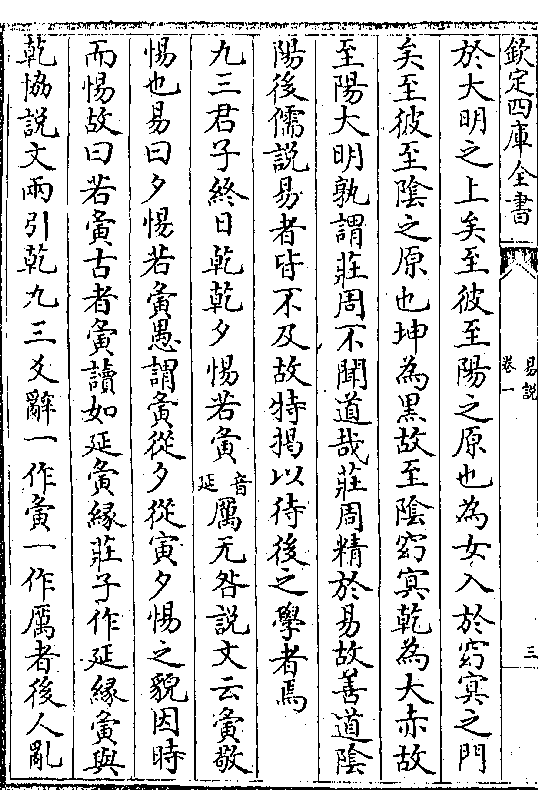 欽定四庫全書
易說
卷一
三
於大明之上矣至彼至陽之原也為女入於窈冥之門
矣至彼至陰之原也坤為黑故至陰窈冥乾為大赤故
至陽大明孰謂莊周不聞道哉莊周精於易故善道陰
陽後儒說易者皆不及故特掲以待後之學者焉
九三君子終日乾乾夕惕若夤音延厲无咎説文云夤敬
惕也易曰夕惕若夤愚謂夤從夕從寅夕惕之貌因時
而惕故曰若夤古者夤讀如延夤縁莊子作延縁夤與
乾協説文兩引乾九三爻辭一作夤一作厲者後人亂